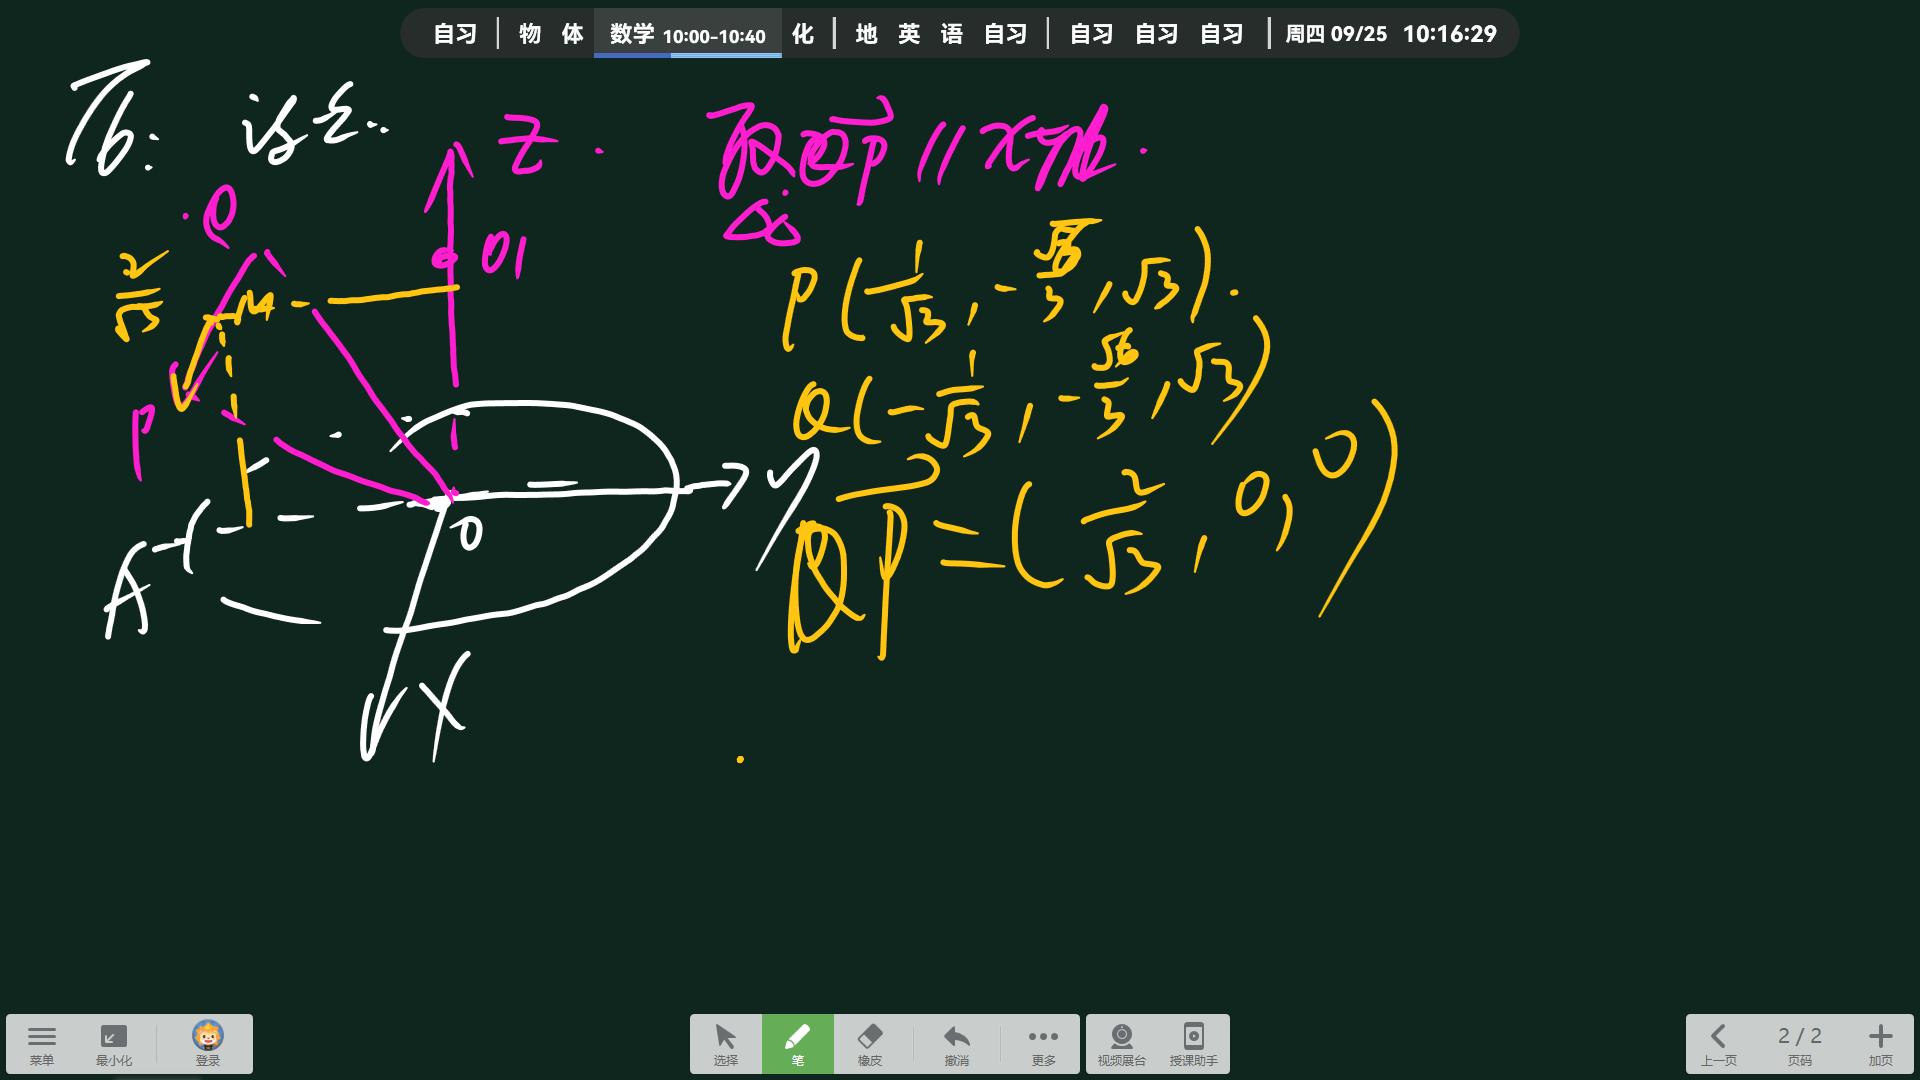 自习 | 物 体 数学 10:00-10:40 化 | 地 英 语 自习 | 自习 自习 自习 | 周四 09/25 10:16:29
T6:
Z
QP // x轴.
Q
O1
2/√3
M
P(1/√3, -√6/3, √3).
Q(-1/√3, -√6/3, √3)
P
y
QP = (2/√3, 0, 0)
O
A
X
菜单 最小化 登录 选择 笔 橡皮 撤消 更多 视频展台 授课助手 上一页 2 / 2 页码 加页